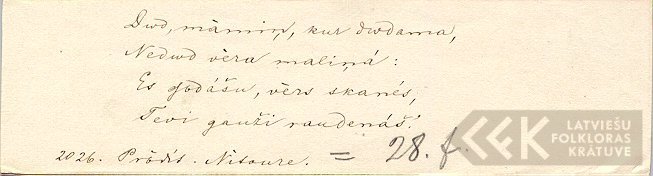 Dwd, māmiņ, kur dwdama,
Nedwd vēra maliņā:
Es godāšu, vērs skanēs,
Tevi gauži raudenāš!
2026. Prōdis. Nitoure. = 28. f.
LATVIEŠU
FOLKLORAS
KRĀTUVE